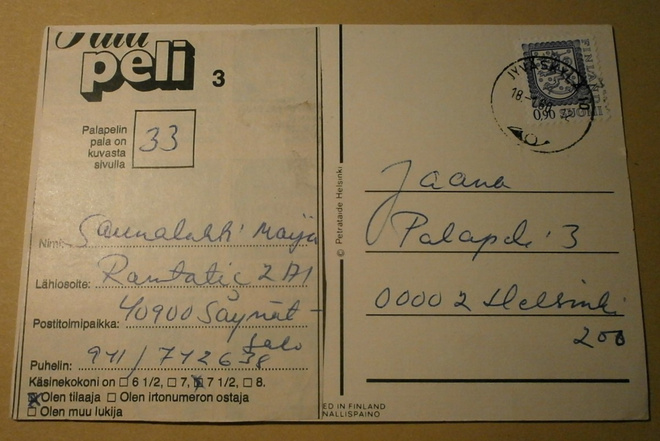 Pala
peli 3
Palapelin
pala on
kuvasta
sivulla
33
Nimi: Saunalahti Maiju
Lähiosoite: Rantatie 2 A1
Postitoimipaikka: 40900 Säynät-
salo
Puhelin: 941/742638
Käsinekokoni on □ 6 1/2, □ 7, ☒ 7 1/2, □ 8.
☒ Olen tilaaja □ Olen irtonumeron ostaja
□ Olen muu lukija
© Petrataide Helsinki
ED IN FINLAND
NALLISPAINO
JYVÄSKYLÄ 10
18
0,90
SUOMI
FINLAND
Jaana
Palapeli 3
00002 Helsinki
200